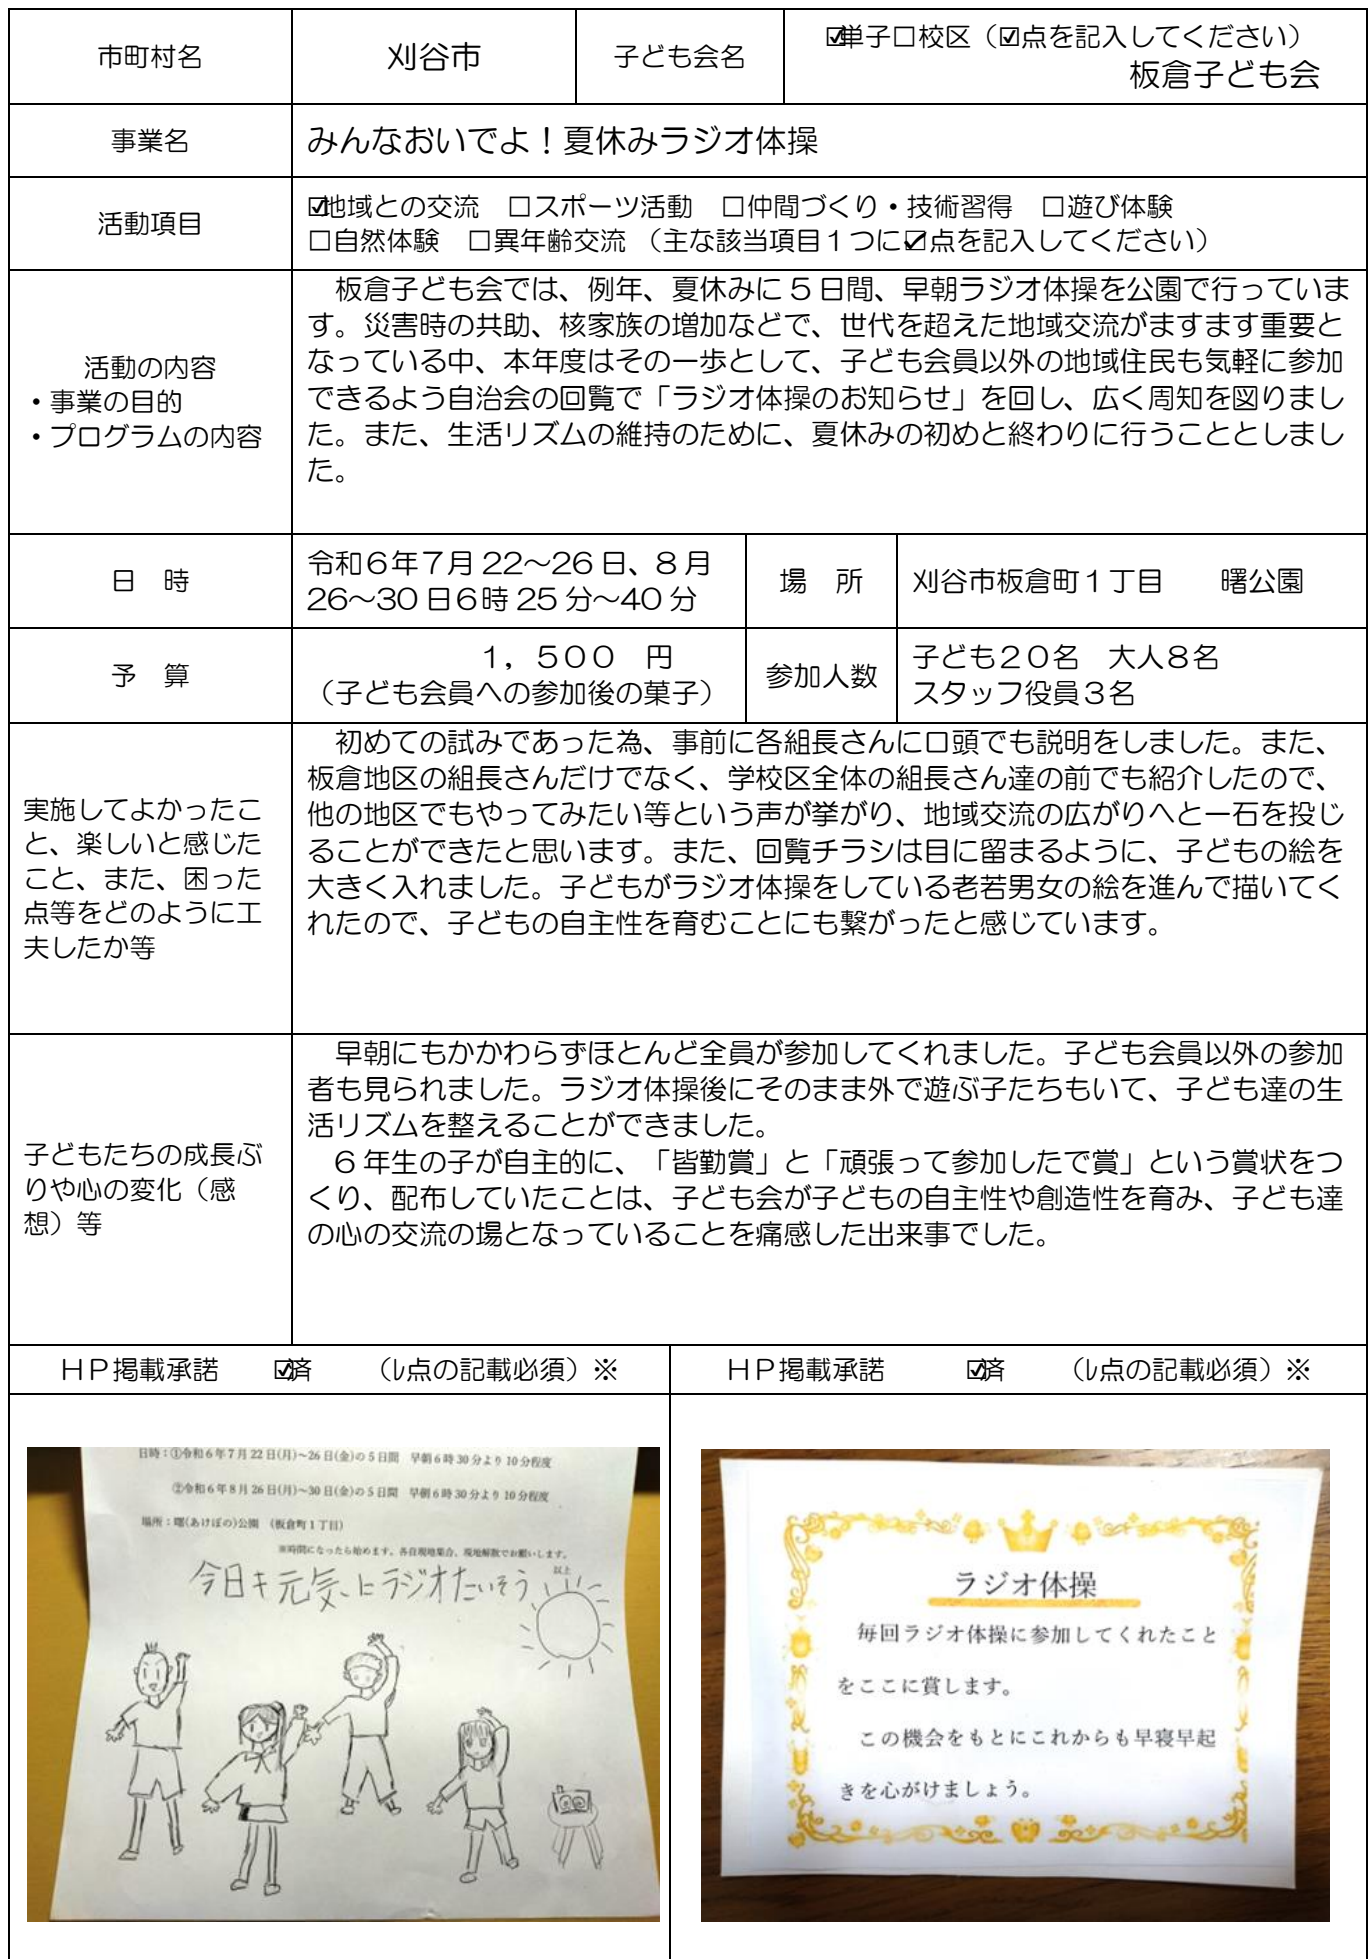 市町村名
刈谷市
子ども会名
☑単子□校区（☑点を記入してください）
板倉子ども会
事業名
みんなおいでよ！夏休みラジオ体操
活動項目
☑地域との交流　□スポーツ活動　□仲間づくり・技術習得　□遊び体験
□自然体験　□異年齢交流　（主な該当項目１つに☑点を記入してください）
活動の内容
・事業の目的
・プログラムの内容
板倉子ども会では、例年、夏休みに５日間、早朝ラジオ体操を公園で行っていま
す。災害時の共助、核家族の増加などで、世代を超えた地域交流がますます重要と
なっている中、本年度はその一歩として、子ども会員以外の地域住民も気軽に参加
できるよう自治会の回覧で「ラジオ体操のお知らせ」を回し、広く周知を図りまし
た。また、生活リズムの維持のために、夏休みの初めと終わりに行うこととしまし
た。
日　時
令和６年７月 22～26 日、８月
26～30 日６時 25 分～40 分
場　所
刈谷市板倉町１丁目　　曙公園
予　算
１，５００　円
（子ども会員への参加後の菓子）
参加人数
子ども２０名　大人８名
スタッフ役員３名
実施してよかったこ
と、楽しいと感じた
こと、また、困った
点等をどのように工
夫したか等
初めての試みであった為、事前に各組長さんに口頭でも説明をしました。また、
板倉地区の組長さんだけでなく、学校区全体の組長さん達の前でも紹介したので、
他の地区でもやってみたい等という声が挙がり、地域交流の広がりへと一石を投じ
ることができたと思います。また、回覧チラシは目に留まるように、子どもの絵を
大きく入れました。子どもがラジオ体操をしている老若男女の絵を進んで描いてく
れたので、子どもの自主性を育むことにも繋がったと感じています。
子どもたちの成長ぶ
りや心の変化（感
想）等
早朝にもかかわらずほとんど全員が参加してくれました。子ども会員以外の参加
者も見られました。ラジオ体操後にそのまま外で遊ぶ子たちもいて、子ども達の生
活リズムを整えることができました。
６年生の子が自主的に、「皆勤賞」と「頑張って参加したで賞」という賞状をつ
くり、配布していたことは、子ども会が子どもの自主性や創造性を育み、子ども達
の心の交流の場となっていることを痛感した出来事でした。
ＨＰ掲載承諾　　☑済　　（レ点の記載必須）※
ＨＰ掲載承諾　　☑済　　（レ点の記載必須）※
日時：①令和６年７月 22 日(月)～26 日(金)の５日間　早朝６時 30 分より 10 分程度
②令和６年８月 26 日(月)～30 日(金)の５日間　早朝６時 30 分より 10 分程度
場所：曙(あけぼの)公園　（板倉町１丁目）
※時間になったら始めます。各自現地集合、現地解散でお願いします。
以上
今日も元気にラジオたいそう
ラジオ体操
毎回ラジオ体操に参加してくれたこと
をここに賞します。
この機会をもとにこれからも早寝早起
きを心がけましょう。